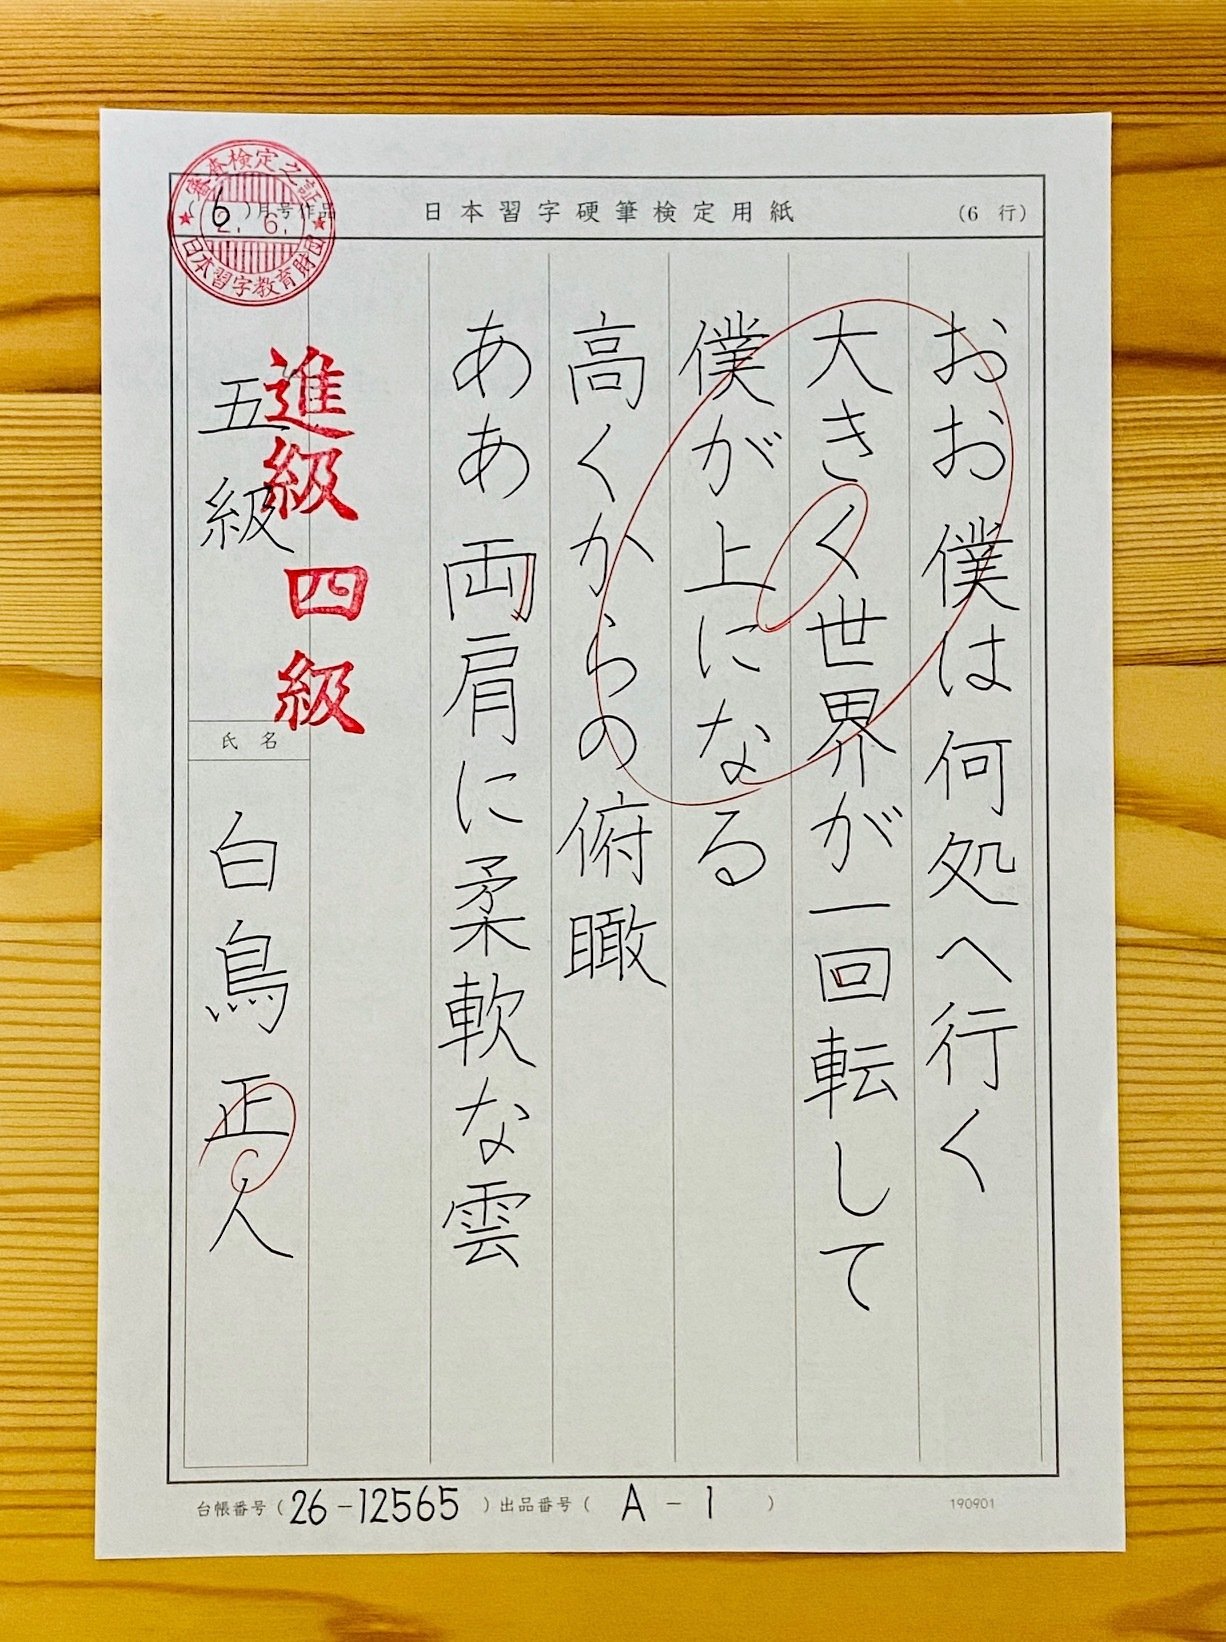 日本習字硬筆検定用紙
（6 行）
（6）月号作品
日本習字教育財団
2. 6.
おお僕は何処へ行く
大きく世界が一回転して
僕が上になる
高くからの俯瞰
ああ両肩に柔軟な雲
進級四級
五級
氏名
白鳥正人
台帳番号（26-12565）出品番号（A-1）
190901